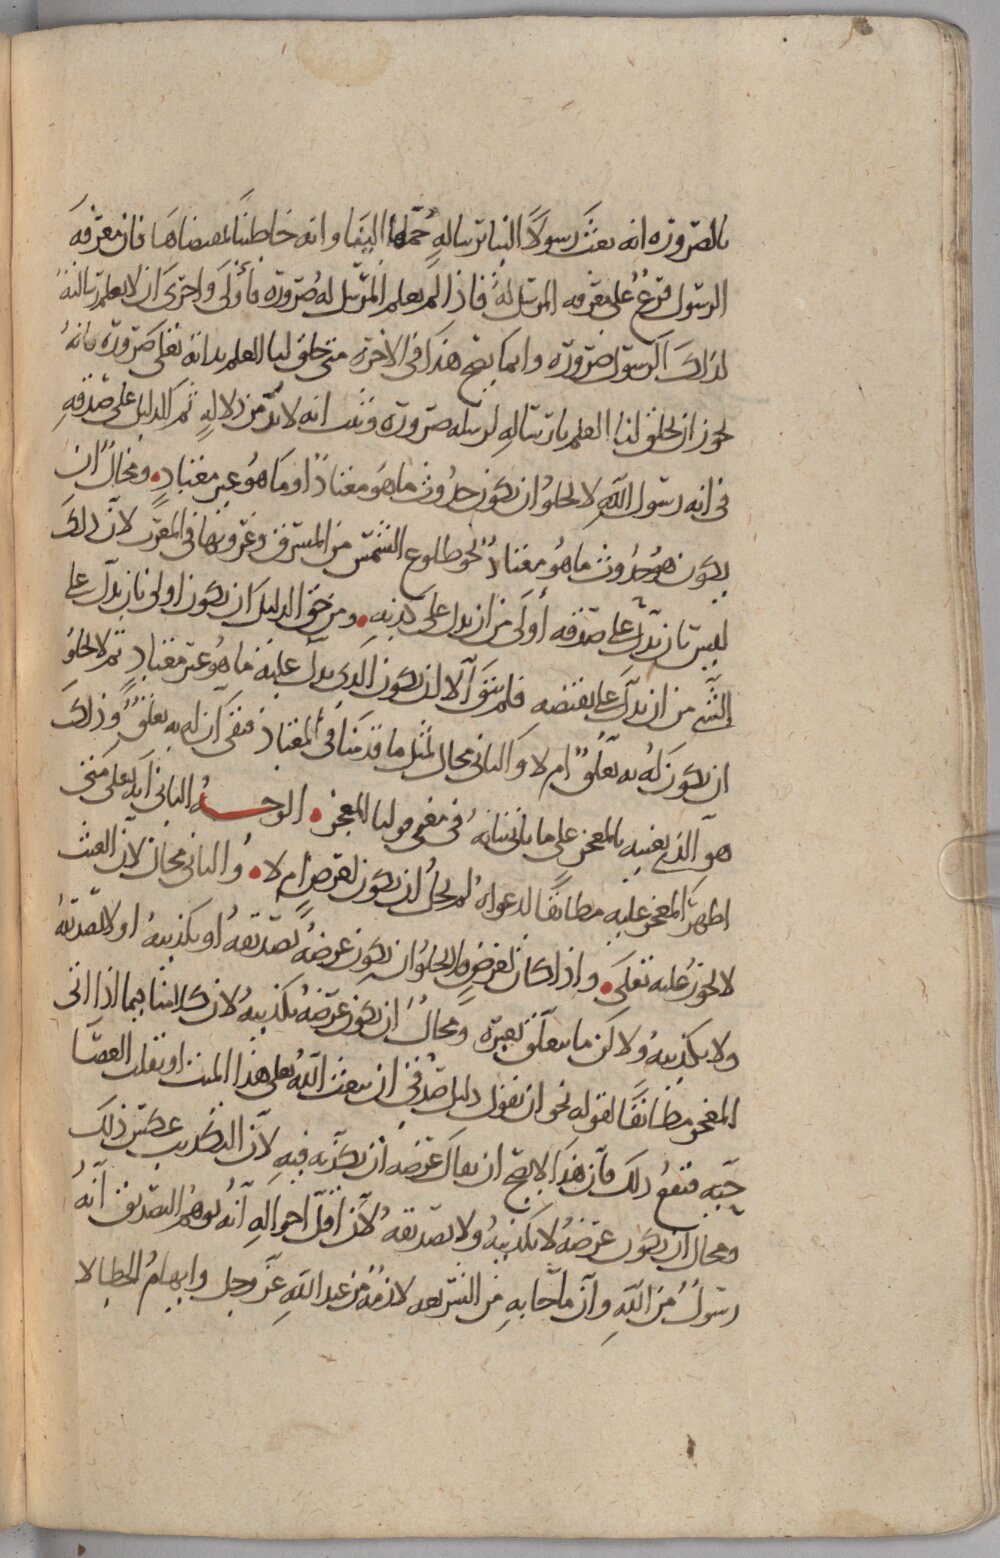 بالضرورة انه بعث رسولاً الينا برسالةٍ حمّلها الينا وانه خاطبنا بمقتضاها فان معرفة
الرسول فرعٌ على معرفة المرسل له فاذا لم يعلم المرسل له ضرورة فأولى واحرى ان لا يعلم رسالته
لذلك الرسول ضرورة وانما يصح هذا في الآخرة متى خلق لنا العلم بذاته تعلى ضرورة فانه
يجوز ان يخلق لنا العلم بارساله لرسله ضرورة وثبت انه لا بد من دلالةٍ ثم الدليل على صدقه
في انه رسول الله لا يخلو ان يكون حدوث ما هو معتادٌ او ما هو غير معتادٍ ومحالٌ ان
يكون هو حدوث ما هو معتادٌ نحو طلوع الشمس من المشرق وغروبها في المغرب لان ذلك
ليس بان يدل على صدقه أولى من ان يدل على كذبه ومن حق الدليل ان يكون اولى بان يدل على
الشي من ان يدل على نقيضه فلم يبق الا ان يكون الذي يدل عليه ما هو غير معتادٍ ثم لا يخلو
ان يكون له به تعلقٌ ام لا والثاني محال لمثل ما قدمنا في المعتاد فبقي ان له به تعلقٌ وذلك
هو الذي نعنيه بالمعجز على ما يأتي بيانه في معنى قولنا المعجز الوجه الثاني انه تعلى متى
اظهر المعجز عليه مطابقًا لدعواه لم يخل ان يكون لغرضٍ ام لا والثاني محال لان العبث
لا يجوز عليه تعلى واذا كان لغرضٍ فلا يخلو ان يكون غرضه تصديقه أو تكذيبه او لا تصديقه
ولا تكذيبه ولا كن ما يتعلق بغيره ومحالٌ ان يكون غرضه تكذيبه لان كلامنا فيما اذا اتى
المعجز مطابقًا لقوله نحو ان يقول دليل صدقي ان يبعث الله تعلى هذا الميت او يقلب العصا
حيّةً فيقع ذلك فان هذا لا يصح ان يقال غرضه ان يكذبه فيه لان التكذيب عكس ذلك
ومحال ان يكون غرضه لا تكذيبه ولا تصديقه لان اقل احواله انه يوهم التصديق أنه
رسولٌ من الله وان ما جا به من الشريعه لازمةٌ من عند الله عز وجل وايهام الخطا لا